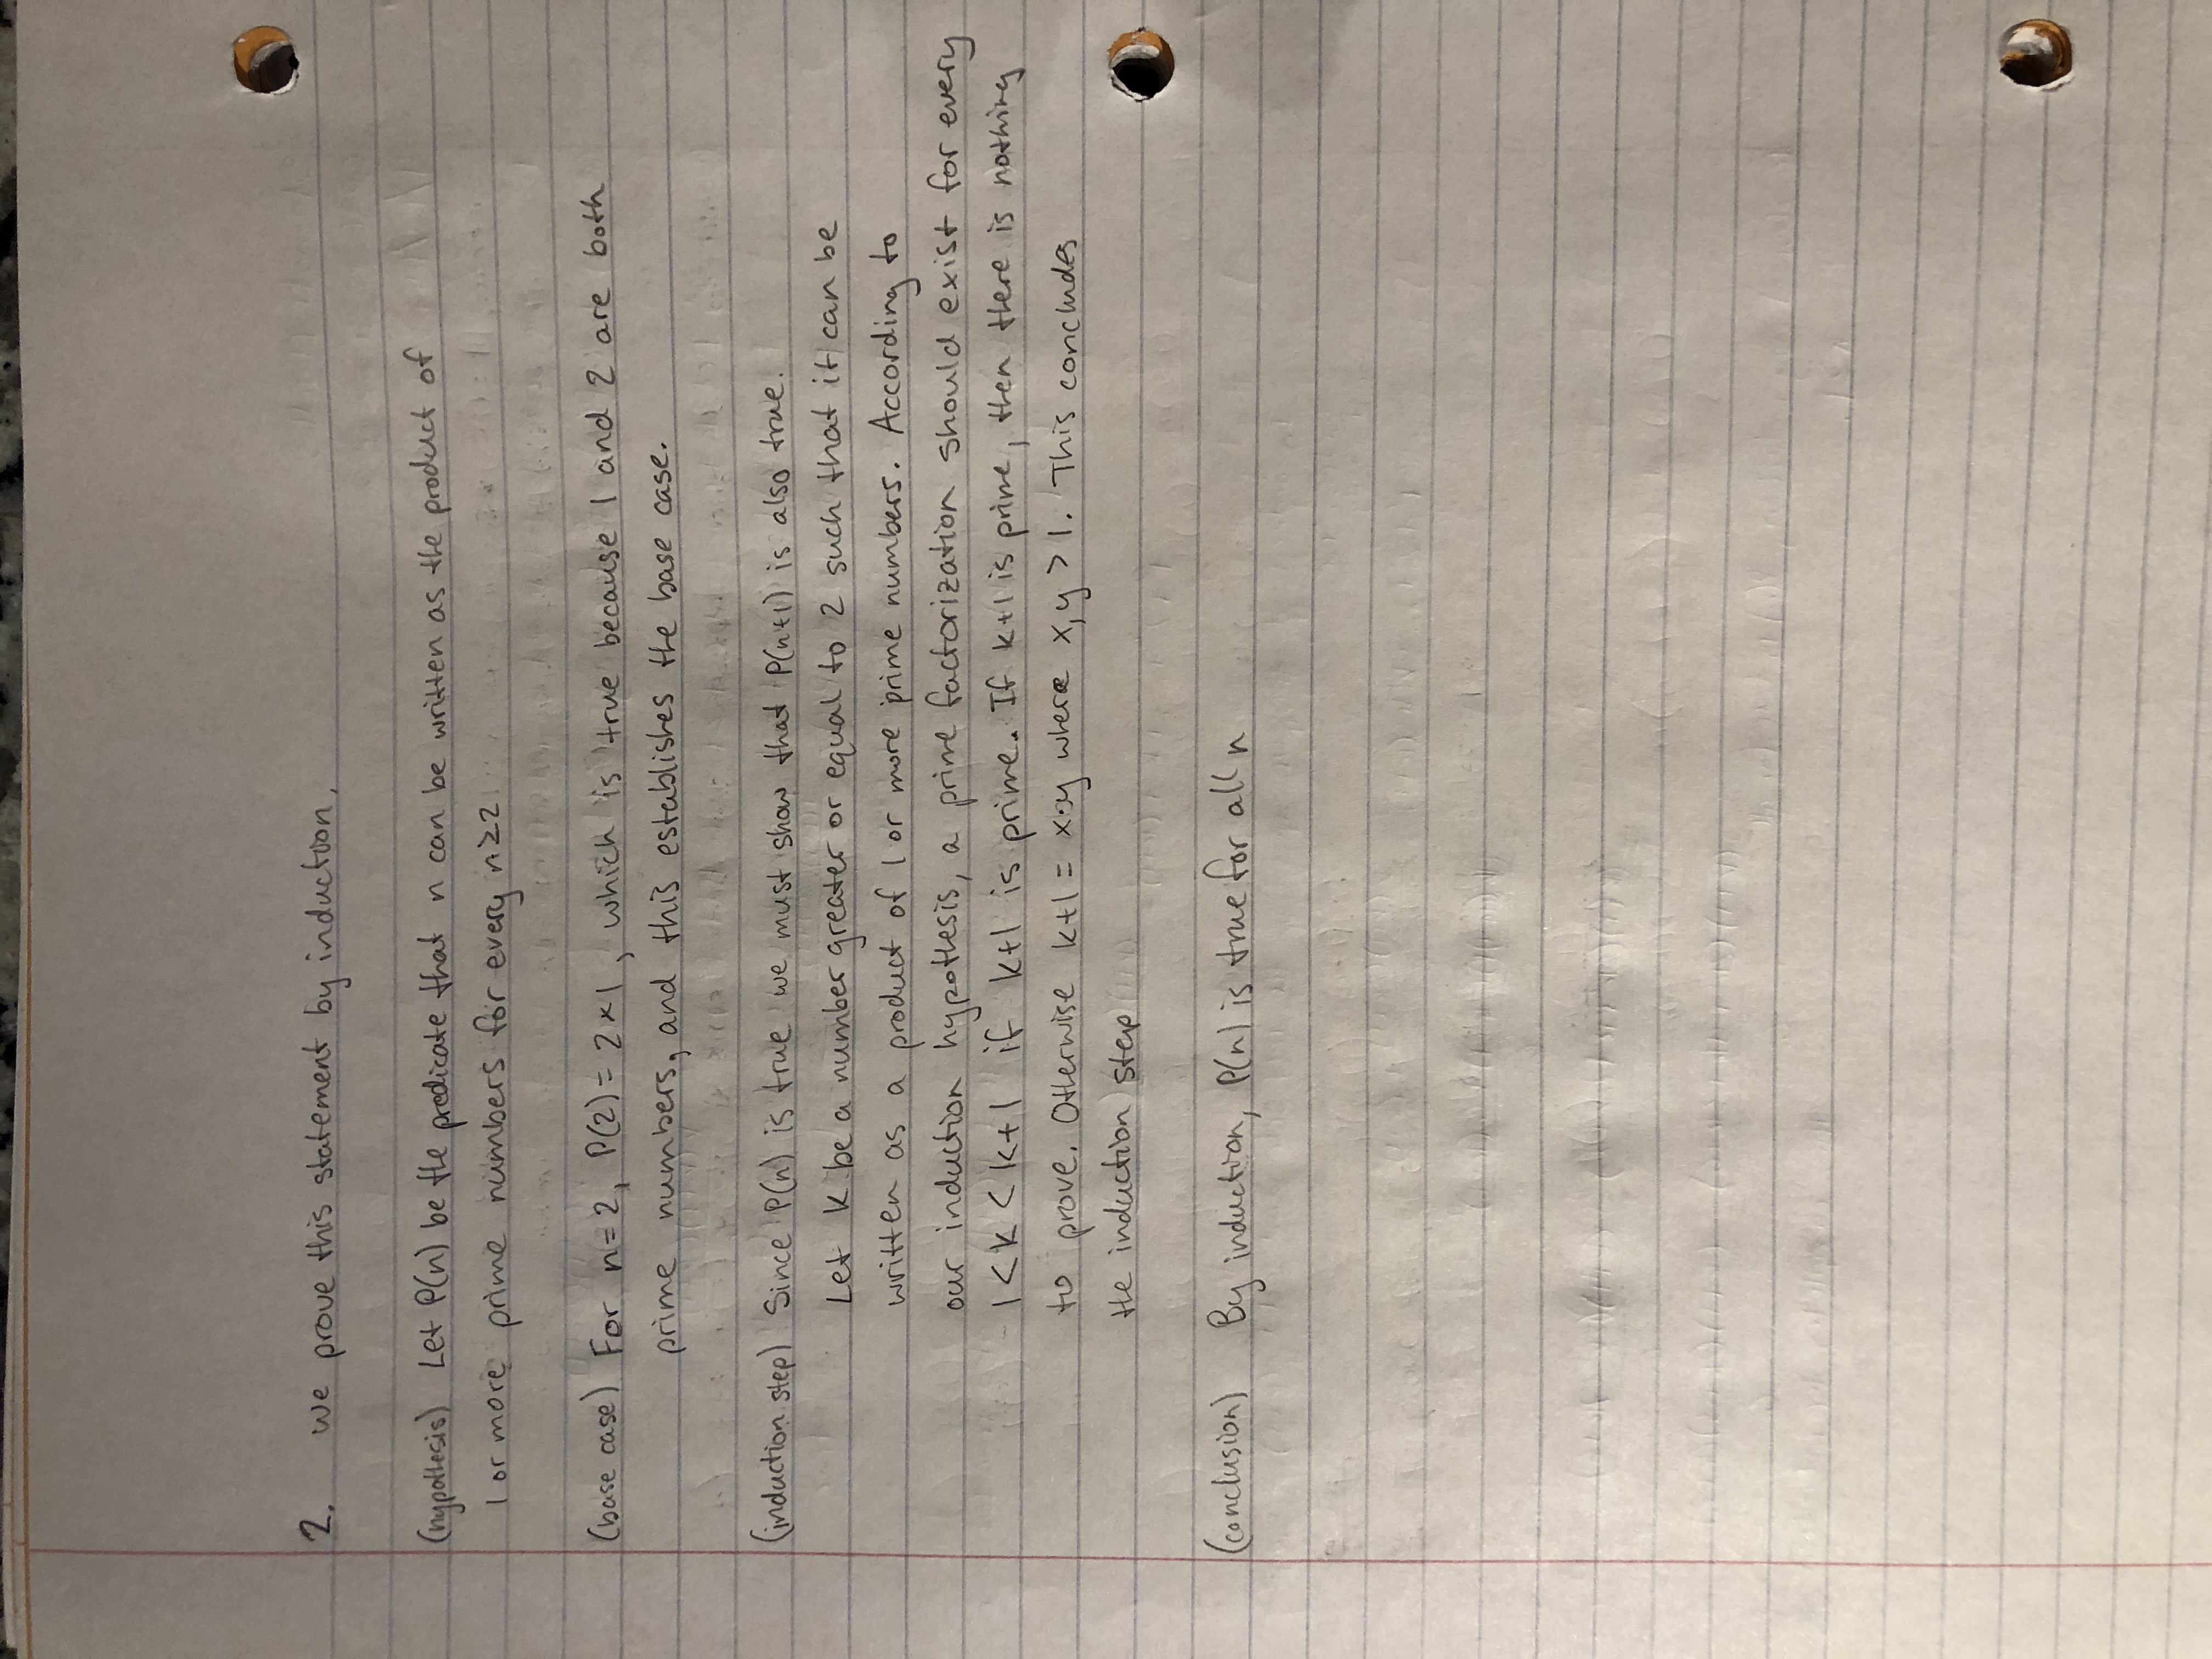 2. we prove this statement by induction.
(hypothesis) Let P(n) be the predicate that n can be written as the product of
1 or more prime numbers for every n≥2
(base case) For n=2, P(2)= 2×1, which is true because 1 and 2 are both
prime numbers, and this establishes the base case.
(induction step) Since P(n) is true we must show that P(n+1) is also true.
Let k be a number greater or equal to 2 such that it can be
written as a product of 1 or more prime numbers. According to
our induction hypothesis, a prime factorization should exist for every
1<k<k+1 if k+1 is prime. If k+1 is prime, then there is nothing
to prove. Otherwise k+1 = x·y where x,y >1. This concludes
the induction step
(conclusion) By induction, P(n) is true for all n